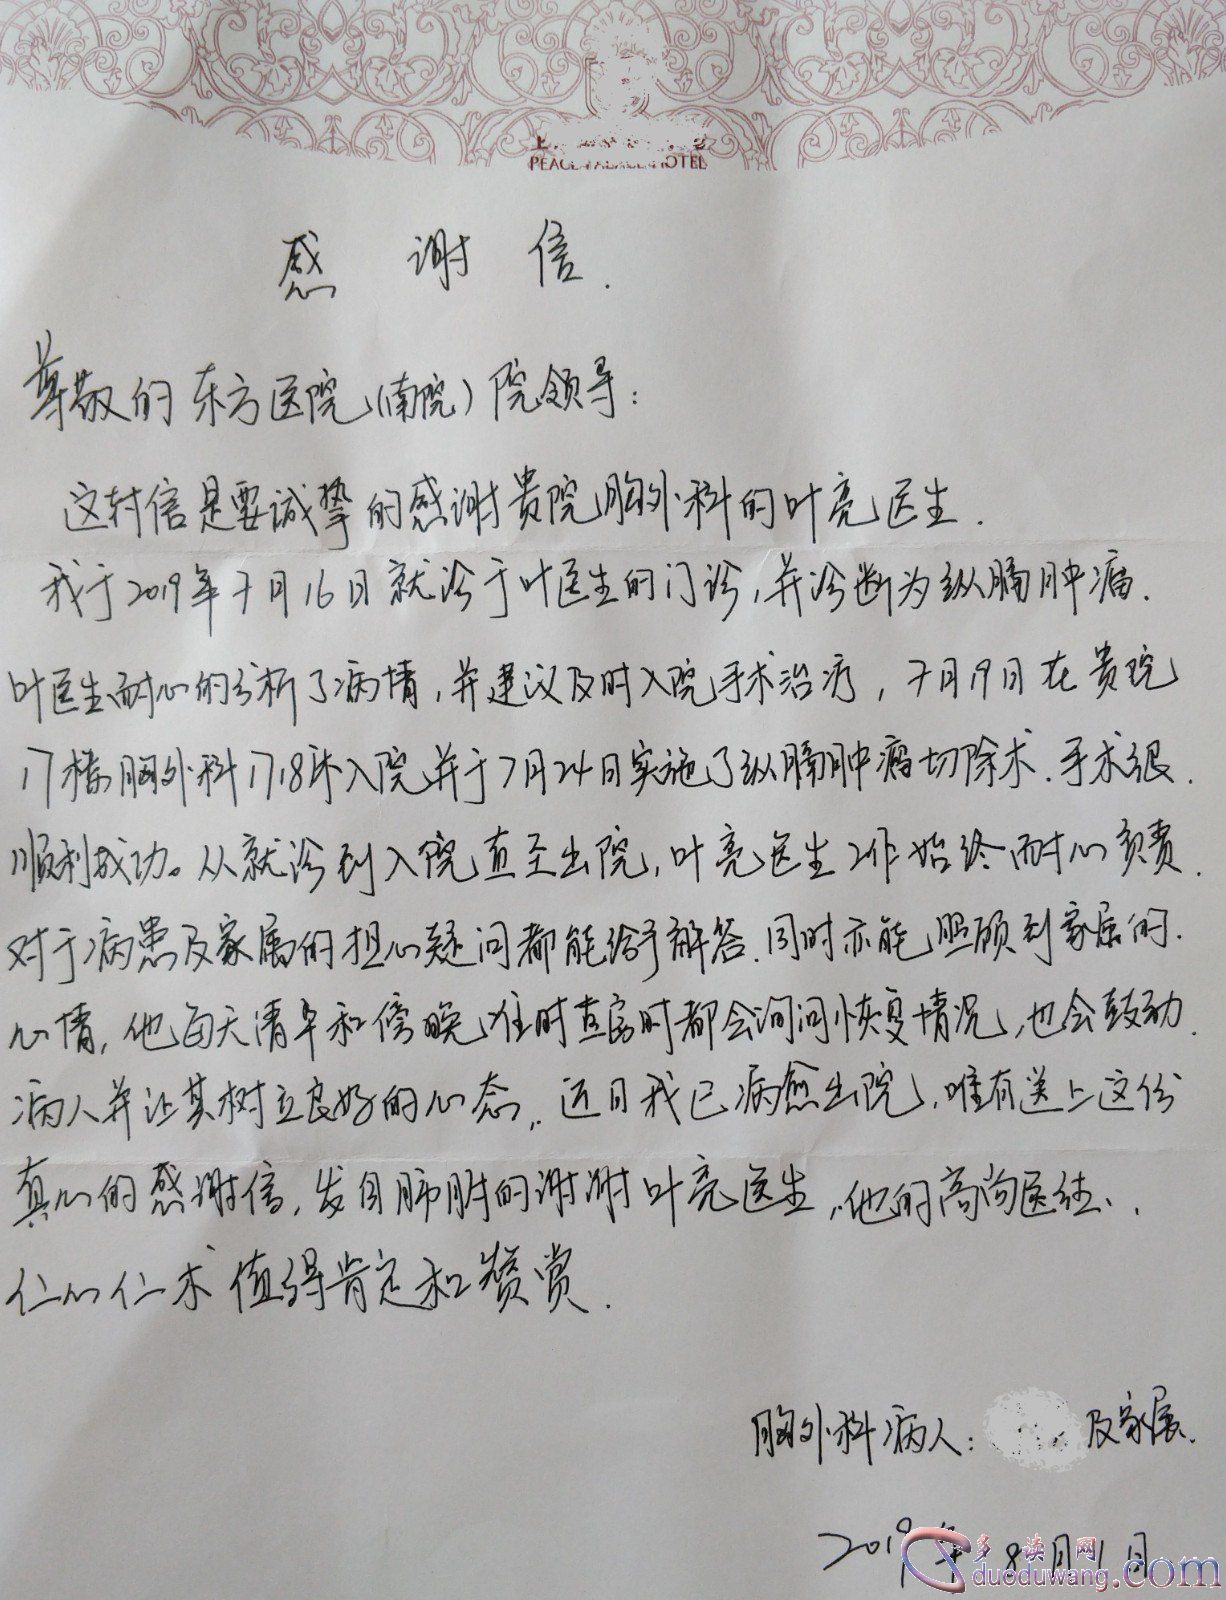 PEACE PALACE HOTEL
感谢信.
尊敬的东方医院(南院)院领导:
这封信是要诚挚的感谢贵院胸外科的叶亮医生.
我于2019年7月16日就诊于叶医生的门诊,并诊断为纵膈肿瘤.
叶医生耐心的分析了病情,并建议及时入院手术治疗,7月19日在贵院
17楼胸外科1718床入院,并于7月24日实施了纵膈肿瘤切除术.手术很.
顺利成功。从就诊到入院直至出院,叶亮医生工作始终耐心负责.
对于病患及家属的担心疑问都能给予解答.同时亦能照顾到家属的.
心情,他每天清早和傍晚准时查房时都会询问恢复情况,也会鼓励.
病人并让其树立良好的心态,.近日我已病愈出院,唯有送上这份
真心的感谢信,发自肺腑的谢谢叶亮医生,他的高尚医德、.
仁心仁术值得肯定和赞赏.
胸外科病人: 及家属.
2019年8月1日
多读网
duoduwang.com